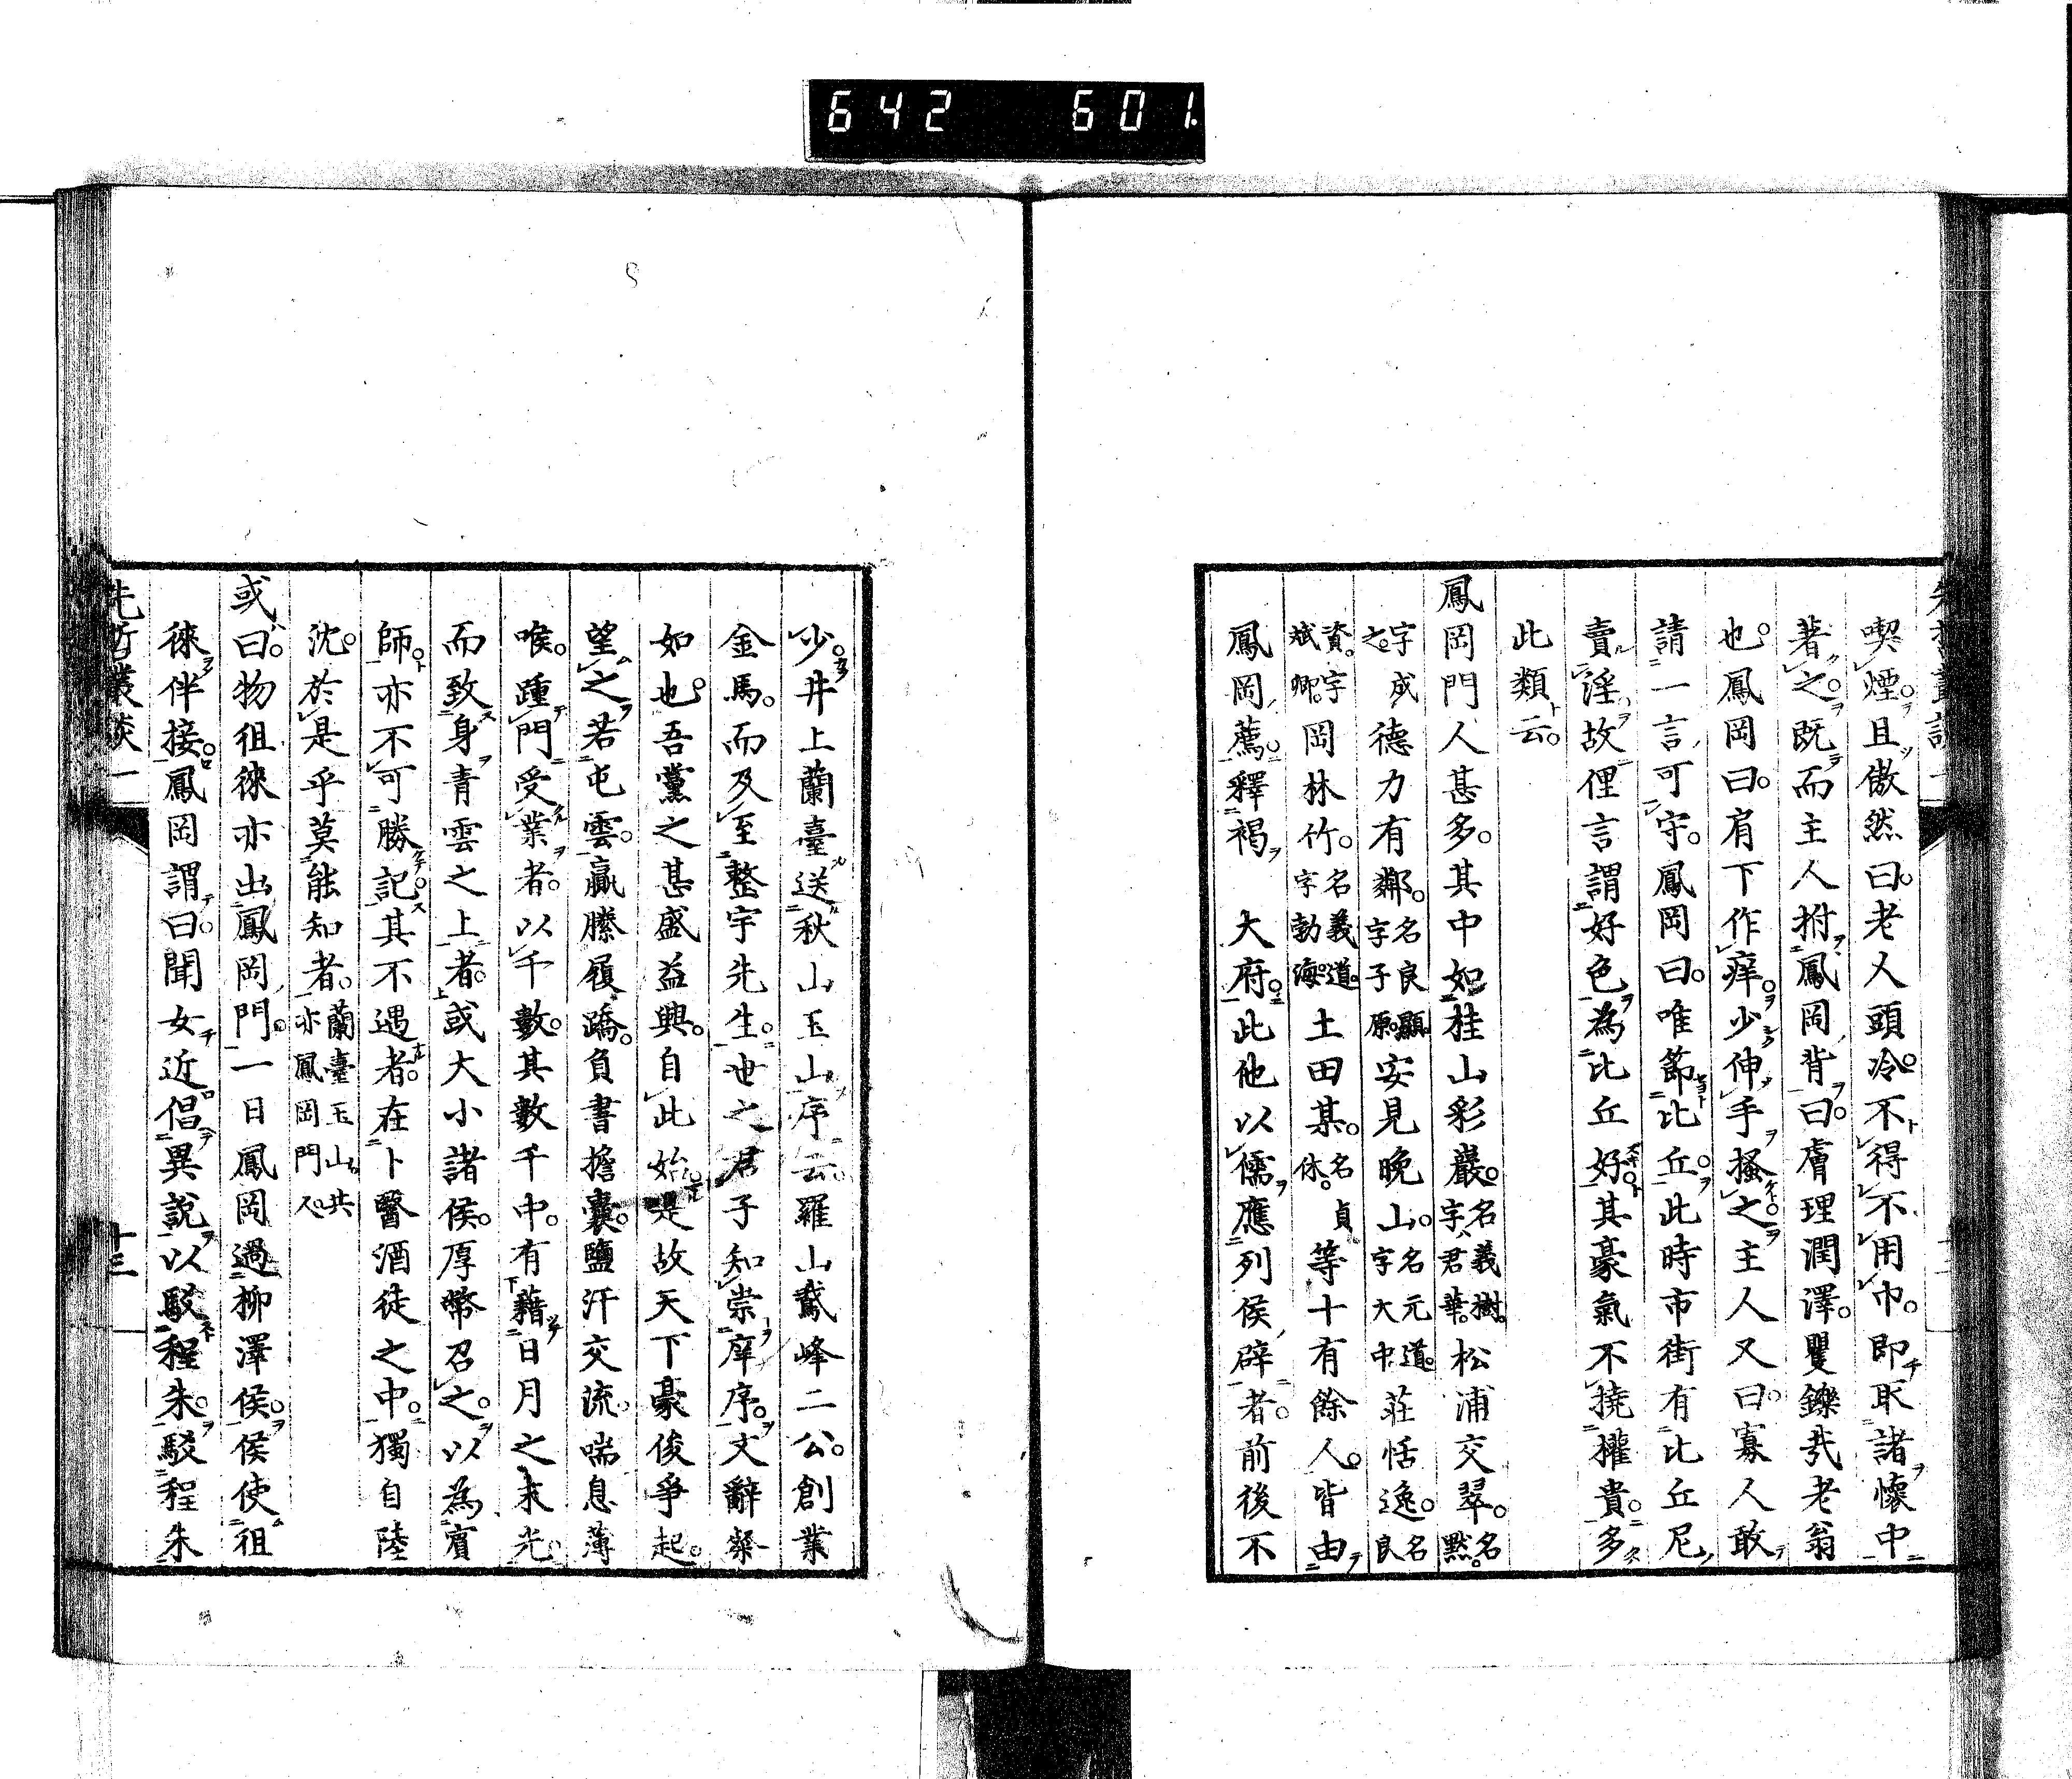 642 601.
喫煙。且傲然曰。老人頭冷。不得不用巾。即取諸懷中
著之。既而主人拊鳳岡背曰。膚理潤澤。矍鑠哉老翁
也。鳳岡曰。肩下作痒。少伸手搔之。主人又曰。寡人敢
請一言可守。鳳岡曰。唯節比丘。此時市街有比丘尼
賣淫故俚言謂好色為比丘好。其豪氣不撓權貴。多
此類云。
鳳岡門人甚多。其中如桂山彩巖。名義樹。字君華。松浦交翠。名默。
字成之。德力有鄰。名良顯字子原。安見晚山。名元道。字大中莊恬逸。名良
資。字斌卿。岡林竹。名義道。字勃海。土田某。名貞休。等十有餘人。皆由
鳳岡薦釋褐 大府。此他以儒應列侯辟者。前後不
少。井上蘭臺送秋山玉山序云。羅山鵞峰二公。創業
金馬。而及至整宇先生。世之君子知崇庠序。文辭粲
如也。吾黨之甚盛益興。自此始。是故天下豪俊爭起。
望之若屯雲。贏縢履蹻。負書擔囊。鹽汗交流。喘息薄
喉。踵門受業者。以千數。其數千中。有藉日月之末光。
而致身青雲之上者。或大小諸侯。厚幣召之。以為賓
師。亦不可勝記。其不遇者。在卜醫酒徒之中。獨自陸
沈。於是乎莫能知者。蘭臺玉山。共亦鳳岡門人。
或曰。物徂徠亦出鳳岡門。一日鳳岡過柳澤侯。侯使徂
徠伴接。鳳岡謂曰。聞女近倡異說以駁程朱。駁程朱
先哲叢談一 十三